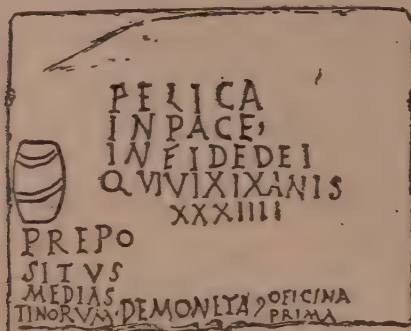 PELICA
INPACE,
INFIDEDEI
QVIVIXIXANIS
XXXIIII
PREPO
SITVS
MEDIAS
TINORVM·DEMONETA, OFICINA
PRIMA